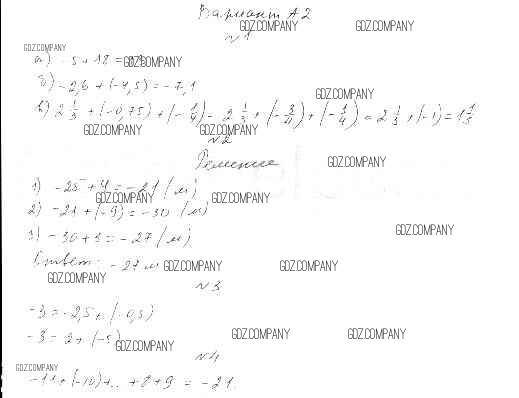 Вариант А2
GDZ.COMPANY GDZ.COMPANY
№1
GDZ.COMPANY
а) -5+18= GDZ.COMPANY
б) -2,6+(-4,5)=-7,1
GDZ.COMPANY
в) 2 1/3 +(-0,75)+(-1/4)= 2 1/3+(-3/4)+(-1/4)=2 1/3+(-1)=1 1/3
GDZ.COMPANY GDZ.COMPANY
№2
Решение GDZ.COMPANY
1) -25+4=-21 (м)
GDZ.COMPANY GDZ.COMPANY
2) -21+(-9)=-30 (м)
3) -30+3=-27 (м) GDZ.COMPANY
Ответ: -27 м GDZ.COMPANY GDZ.COMPANY
GDZ.COMPANY
№3
-3=-2,5+(-0,5)
-3=2+(-5) GDZ.COMPANY GDZ.COMPANY GDZ.COMPANY
№4
GDZ.COMPANY
-11+(-10)+..+8+9=-21